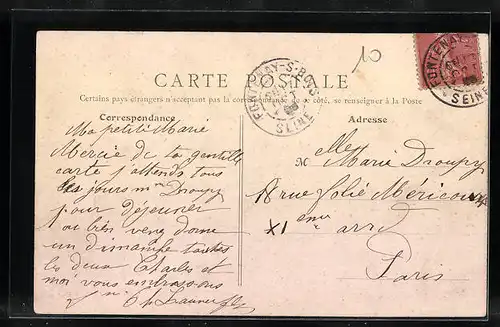 10
CARTE POSTALE
Certains pays étrangers n'acceptent pas la correspondance de ce côté, se renseigner à la Poste
Correspondance
Ma petite Marie
Mercie de ta gentille
carte j'attends tous
les jours mme Droupy
pour déjeuner
ou bien venez donc
un dimanche toutes
les deux Charles et
moi vous embrassons
FONTENAY-S-BOIS
SEINE
Adresse
Melle Marie Droupy
8 rue folie Méricourt
XI eme arrd
Paris
FONTENAY
SEINE